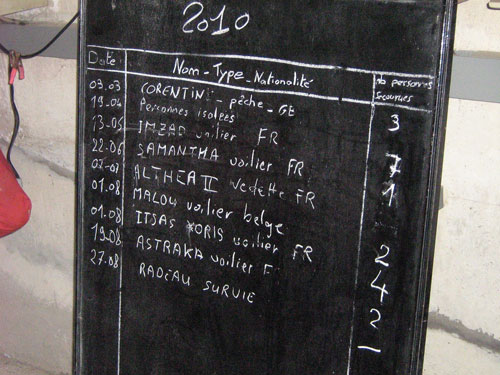 2010
Date Nom - Type - Nationalité nb personnes secourues
03.03 CORENTIN - pêche - GE 3
19.04 Personnes isolées
13-05 IMZAD voilier FR
22.06 SAMANTHA voilier FR
02-07 ALTHEA II vedette FR 1
01.08 MALOU voilier belge
01.08 ITSAS XORIS voilier FR 2
19.08 ASTRAKA voilier F 4
27.08 RADEAU SURVIE 2